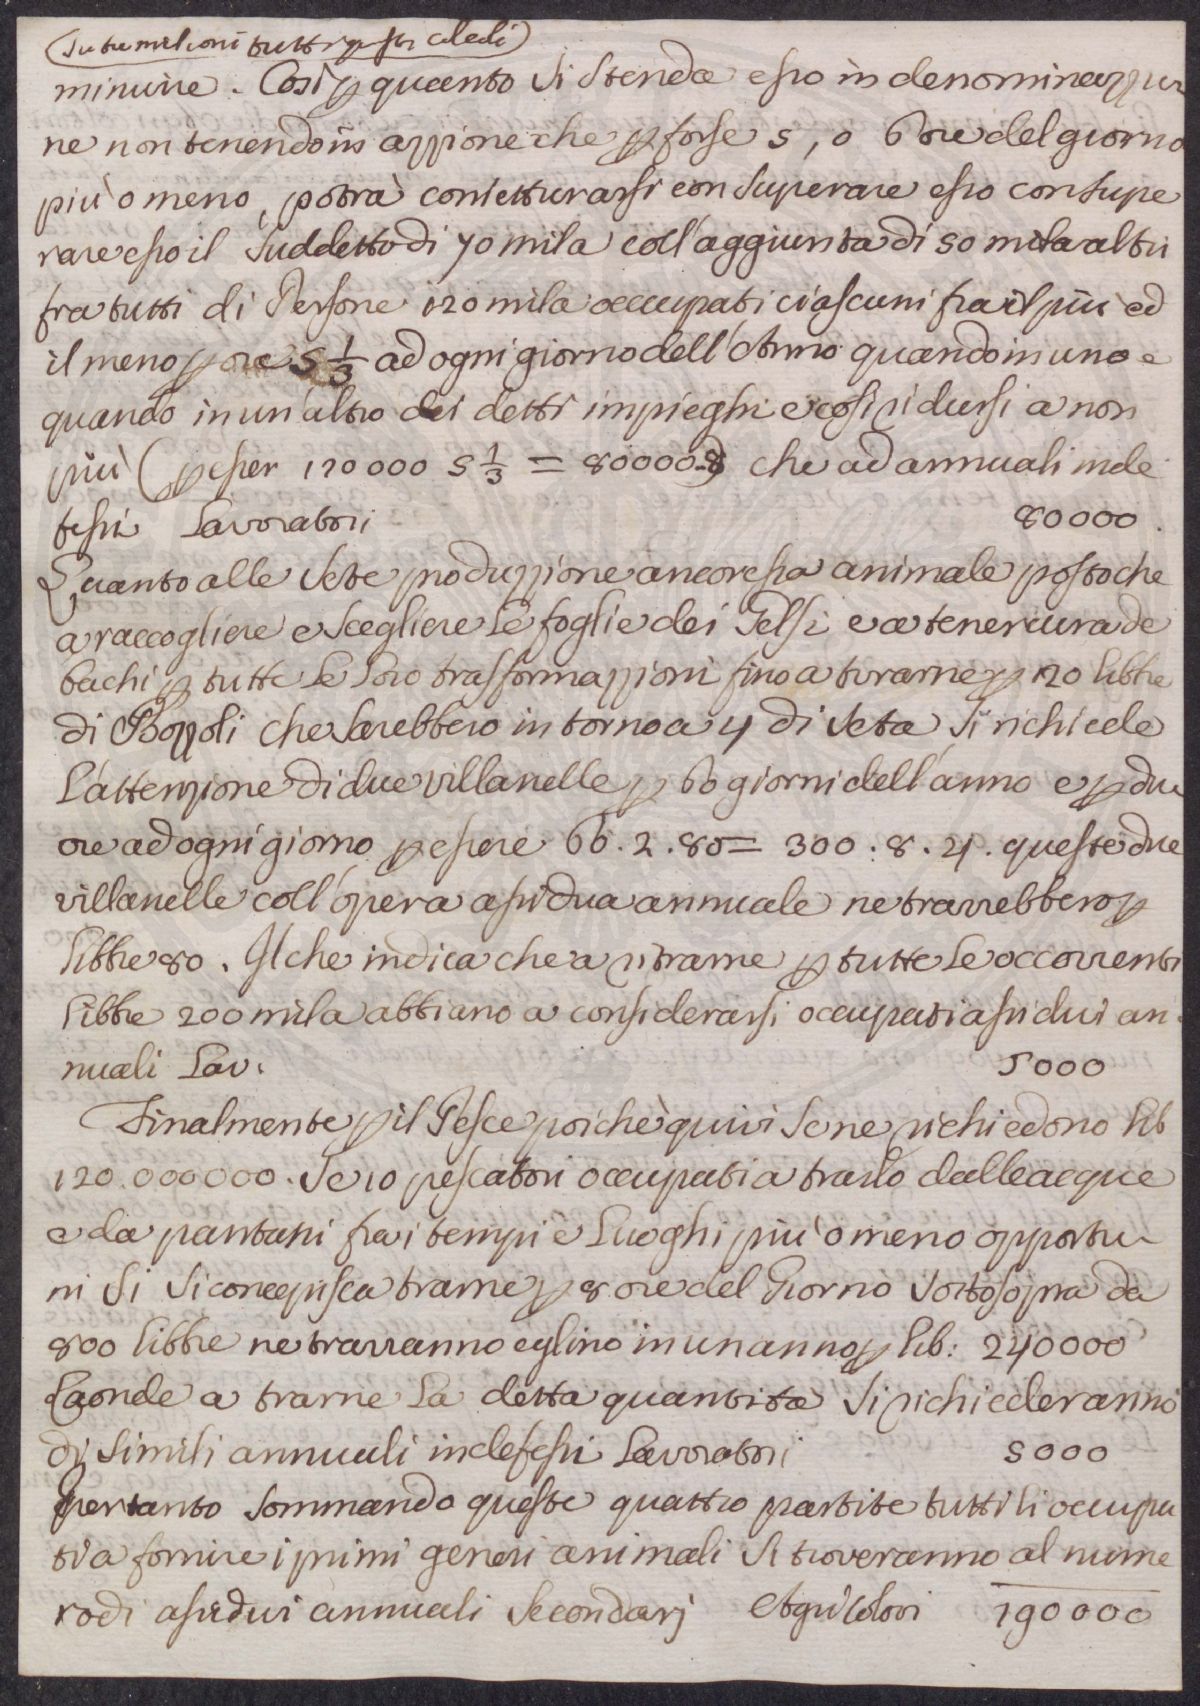 tutti questi
minuire. Così p quanto si stenda esso in denominazzio
ne non tenendosi azzione che p forse 5, o 6 ore del giorno
più o meno, potrà conietturarsi con superare esso con supe
rare esso il suddetto di 70 mila coll'aggiunta di 50 mila altri
fra tutti di Persone 120 mila occupati ciascuni fra il più ed
il meno p ore 5 1/3 ad ogni giorno dell'Anno quando in uno e
quando in un'altro dei detti impieghi e così ridursi a non
più (p esser 120000 5 1/3 = 80000.8) che ad annuali inde
fessi Lavoratori 80000.
Quanto alle Sete produzzione ancoressa animale posto che
a raccogliere e scegliere le foglie dei Gelsi e a tener cura de
bachi p tutte le loro trasformazzioni fino a tirarne p 120 libbre
di Bozzoli che sarebbero intorno a 4 di Seta si richiede
l'attenzione di due villanelle p 60 giorni dell'anno e p due
ore ad ogni giorno p essere 60.2.80 = 300.8.4. queste due
villanelle coll'opera assidua annuale ne trarrebbero p
libbre 80. Il che indica che a ritrarne p tutte le occorrenti
libbre 200 mila abbiano a considerarsi occupati assidui an
nuali Lav. 5000
Finalmente p il Pesce poiche quivi se ne richiedono lib
120.000000. Se 10 pescatori occupati a trarlo dalle acque
e da pantani fra i tempi e luoghi più o meno opportu
ni si si concepisca trarne p 8 ore del Giorno sottosopra da
800 libbre ne trarranno eglino in un anno p lib: 240000
Laonde a trarne la detta quantità si richiederanno
di simili annuali indefessi Lavoratori 5000
Pertanto sommando queste quattro partite tutti li occupa
ti a fornire i primi generi animali si troveranno al nume
ro di assidui annuali Secondarj Agricolori 190000